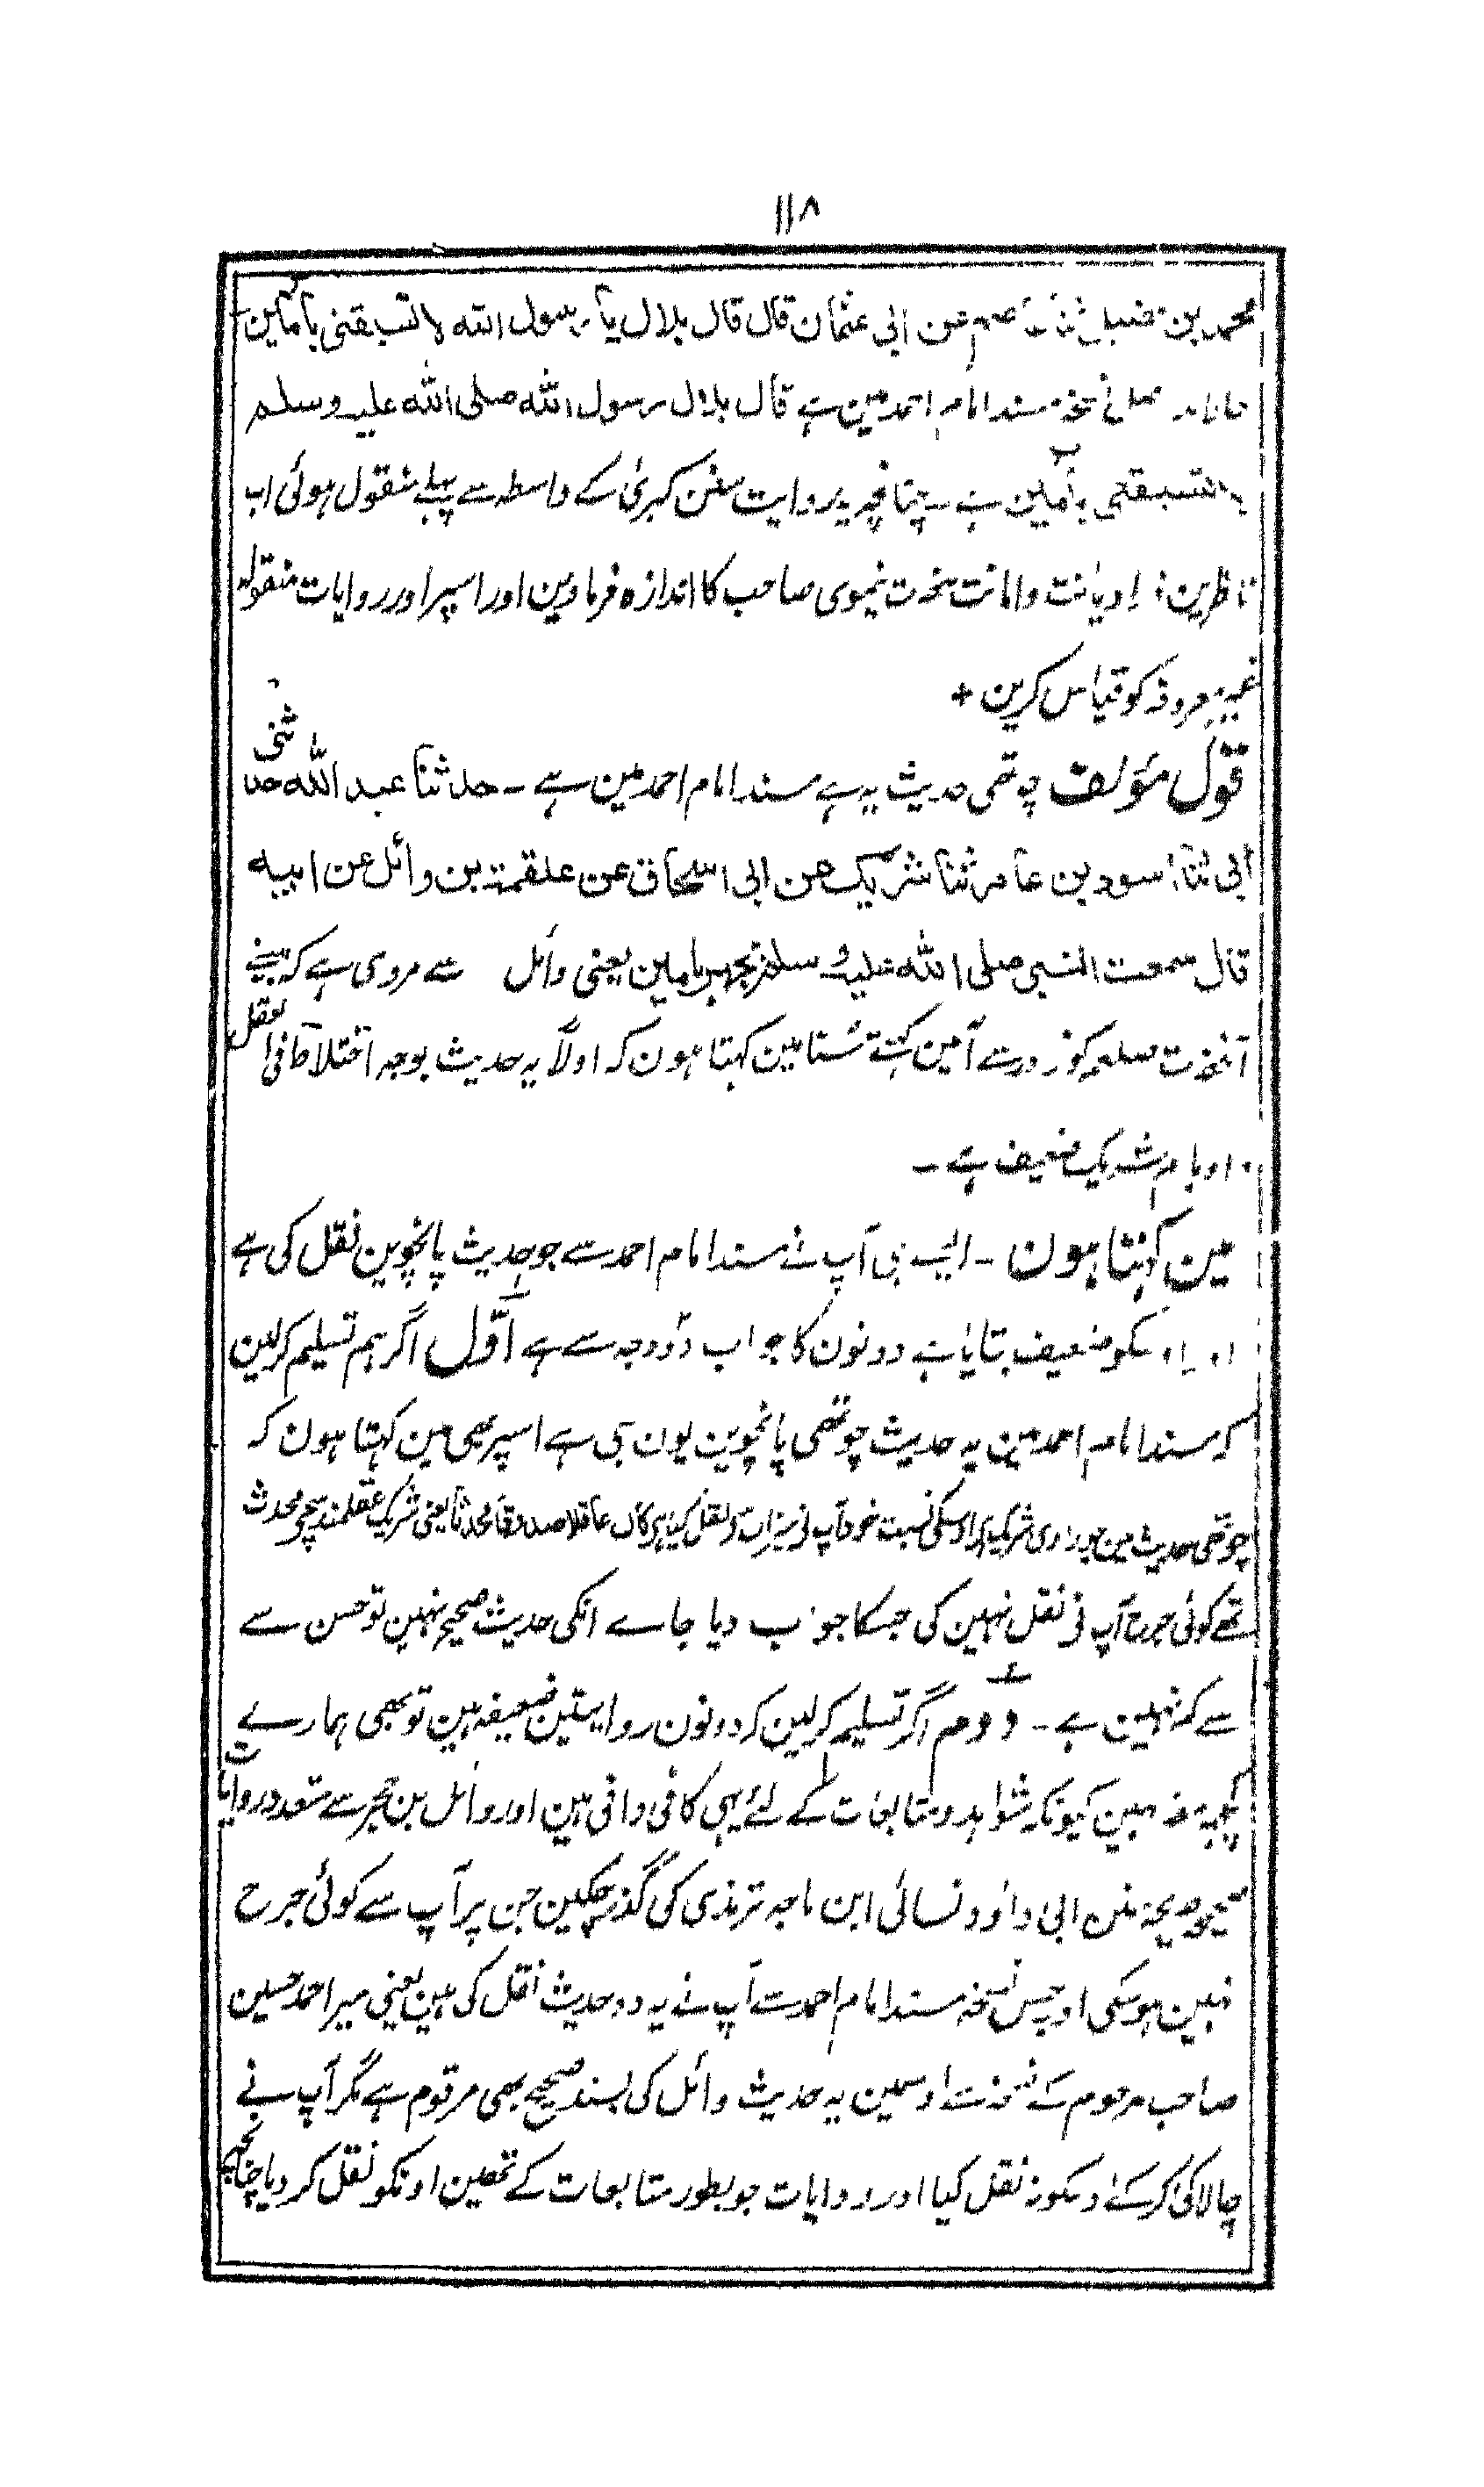 ۱۱۸
محمد بن فضیل ثنا عاصم عن ابی عثمان قال قال بلال یا رسول الله لا تسبقنی بآمین
نسخہ مسند امام احمد مین ہے قال بلال رسول الله صلی الله علیہ وسلم
لا تسبقنی بآمین ہے۔ چنانچہ یہ روایت سنن کبریٰ کے واسطہ سے پہلے منقول ہوئی اب
ناظرین ذرا دیانت وامانت حضرت نیموی صاحب کا اندازہ فرماوین اور اسپر اور روایات منقولہ
غیر معروفہ کو قیاس کرین +
قول مؤلف چوتھی حدیث یہ ہے مسند امام احمد مین ہے ۔ حدثنا عبد الله حدثنی
ابی ثنا اسود بن عامر ثنا شریک عن ابی اسحاق عن علقمة بن وائل عن ابیہ
قال سمعت النبی صلی الله علیہ وسلم یجہر بآمین یعنی وائل سے مروی ہے کہ مینے
آنحضرت صلعم کو زور سے آمین کہتے سُنا مین کہتا ہون کہ اولاً یہ حدیث بوجہ اختلاط فی العقل
واوہام شریک ضعیف ہے ۔
مین کہتا ہون ۔ ایسے ہی آپ نے مسند امام احمد سے جو حدیث پانچوین نقل کی ہے
اور اوسکو ضعیف بتایا ہے دونون کا جواب دو وجہ سے ہے اوّل اگر ہم تسلیم کرلین
کہ مسند امام احمد مین یہ حدیث چوتھی پانچوین یون ہی ہے اسپر بھی مین کہتا ہون کہ
چوتھی حدیث مین جو راوی شریک ہے اوسکی نسبت خود آپ نے میزان سے نقل کیا ہے کان عاقلا صدوقا محدثا یعنی شریک عقلمند سچے محدث
تھے کوئی جرح آپ نے نقل نہین کی جسکا جواب دیا جاے انکی حدیث صحیح نہین تو حسن سے
کم نہین ہے ۔ دوم اگر تسلیم کرلین کہ دونون روایتین ضعیف ہین تو بھی ہمارے
کچھ مضر نہین کیونکہ شواہد ومتابعات کے لئے یہی کافی وافی ہین اور وائل بن حجر سے متعدد روایات
صحیحہ صریحہ سنن ابی داؤد ونسائی ابن ماجہ ترمذی کی گذر چکین جن پر آپ سے کوئی جرح
نہین ہوسکی اور جس نسخہ مسند امام احمد سے آپ نے یہ دو حدیث نقل کی ہین یعنی میر احمد حسین
صاحب مرحوم کے نسخہ سے اوسمین یہ حدیث وائل کی بسند صحیح بھی مرقوم ہے مگر آپ نے
چالاکی کرکے اوسکو نہ نقل کیا اور روایات جو بطور متابعات کے تھین اونکو نقل کر دیا چنانچہ